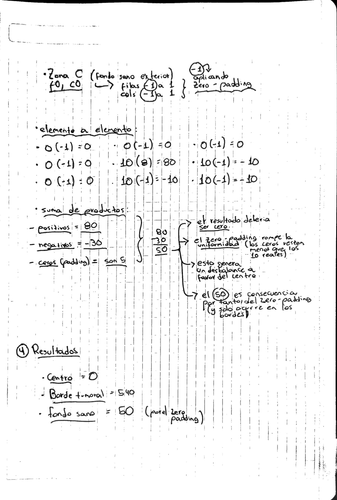 · Zona C (fondo sano exterior)
f0, c0 → filas -1 a 1
cols -1 a 1
(-1) aplicando
zero-padding
· elemento a elemento:
· 0(-1)=0 · 0(-1)=0 · 0(-1)=0
· 0(-1)=0 · 10(8)=80 · 10(-1)=-10
· 0(-1)=0 · 10(-1)=-10 · 10(-1)=-10
· suma de productos:
- positivos = 80
- negativos = -30
- ceros (padding) = son 5
80
-30
50
→ el resultado debería
ser cero
→ el zero-padding rompe la
uniformidad (los ceros restan
menos que los
10 reales)
→ esto genera
un desbalance a
favor del centro
→ el 50 es consecuencia
por tanto del zero-padding
(y solo ocurre en los
bordes)
④ Resultados:
· Centro = 0
· Borde tumoral = 540
· fondo sano = 50 (por el zero
padding)